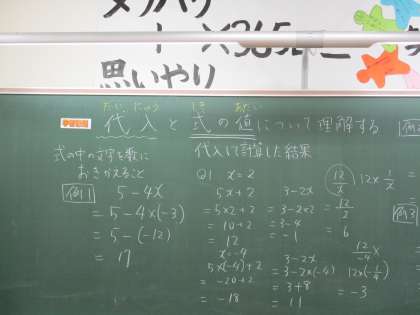 メリハリ
1×365
黒いやり
だいにゅう しき あたい
学習課題
代入と式の値について理解する
式の中の文字を数に
おきかえること
代入して計算した結果
例1
5-4x
=5-4×(-3)
=5-(-12)
=17
Q1 x=2
5x+2
=5×2+2
=10+2
=12
x=-4
5×(-4)+2
=-20+2
=-18
3-2x
=3-2×2
=3-4
=-1
3-2x
=3-2×(-4)
=3+8
=11
12/x
12×1/x
=12/2
=6
12/-4
12×(-1/4)
=-3
例3